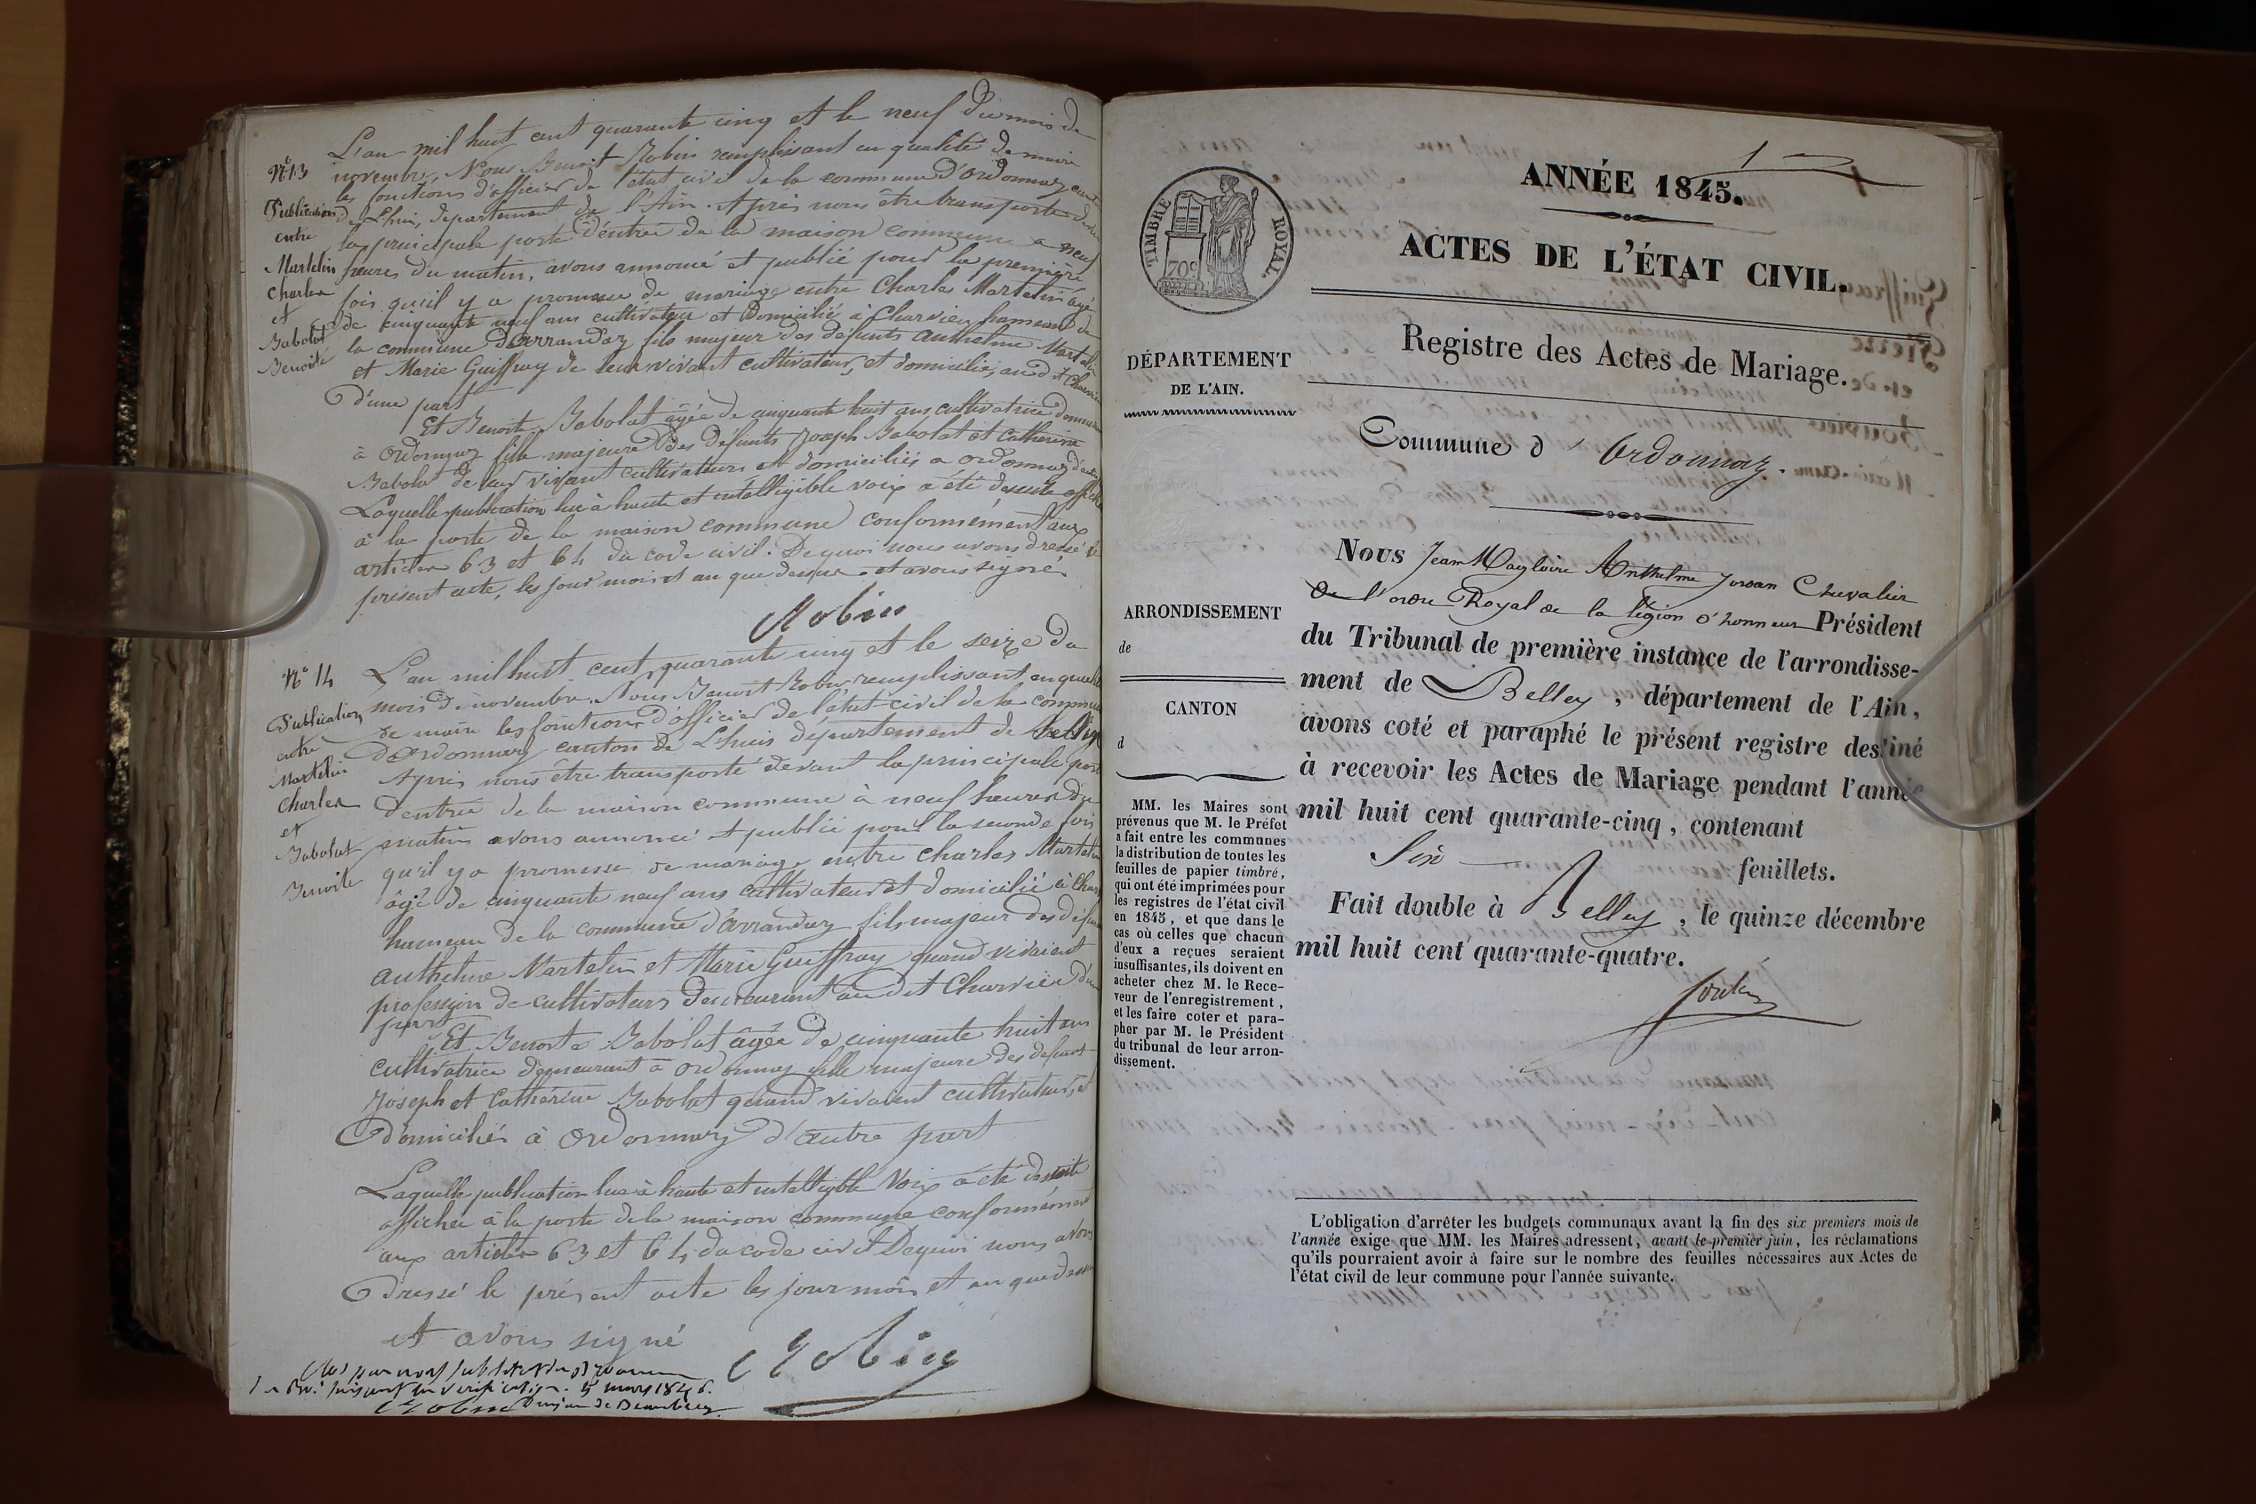 L'an mil huit cent quarante cinq et le neuf du mois de
novembre, Nous Benoit Robin remplissant en qualité de maire
les fonctions d'officier de l'état civil de la commune d'Ordonnaz canton
de Lhuis, département de l'Ain. Après nous être transporté devant
la principale porte d'entrée de la maison commune a neuf
heures du matin, avons annoncé et publié pour la première
fois qu'il y a promesse de mariage entre Charles Martelin âgé
de cinquante neuf ans cultivateur et domicilié à Charvieu hameau de
la commune d'arrandaz fils majeur des défunts Anthelme Martelin
et Marie Guiffray de leur vivant cultivateurs, et domiciliés au dit Charvieu
D'une part
Et Benoite Babolat âgée de cinquante huit ans cultivatrice demeurant
à Ordonnaz fille majeure des défunts Joseph Babolat et Catherine
Babolat de leur vivant cultivateurs et domiciliés a Ordonnaz d'autre
Laquelle publication lue à haute et intelligible voix a été de suite affichée
à la porte de la maison commune conformément aux
articles 63 et 64 du code civil. De quoi nous avons dressé le
présent acte, les jour mois et an que dessus et avons signé
Robin
N° 13
Publication
entre
Martelin
Charles
et
Babolat
Benoite
N° 14
Publication
entre
Martelin
Charles
et
Babolat
Benoite
L'an mil huit cent quarante cinq et le seize du
mois de novembre. Nous Benoit Robin remplissant en qualité
de maire les fonctions d'officier de l'état civil de la commune
d'Ordonnaz canton de Lhuis département de
Après nous être transporté devant la principale porte
d'entrée de la maison commune à neuf heures du
matin avons annoncé et publié pour la seconde fois
qu'il y a promesse de mariage entre Charles Martelin
âgé de cinquante neuf ans cultivateur et domicilié à
hameau de la commune d'arrandaz fils majeur des
anthelme Martelin et Marie Guiffray quand vivaient
profession de cultivateurs demeurant au dit Charvieu d'une
part
Et Benoite Babolat âgée de cinquante huit ans
cultivatrice demeurant a Ordonnaz fille majeure des défunts
Joseph et Cathérine Babolat quand vivaient cultivateurs, et
Domiciliés à Ordonnaz d'autre part
Laquelle publication lue à haute et intelligible voix a été de suite
affichée à la porte de la maison commune conformément
aux articles 63 et 64 du code civil De quoi nous avons
Dressé le présent acte les jour mois et an que dessus
et avons signé
Robin
5 mars 1846.
Robin
ANNÉE 1845.
1
TIMBRE ROYAL.
70c
ACTES DE L'ÉTAT CIVIL.
Registre des Actes de Mariage.
DÉPARTEMENT
DE L'AIN.
Commune d'Ordonnaz.
ARRONDISSEMENT
de
CANTON
d
MM. les Maires sont
prévenus que M. le Préfet
a fait entre les communes
la distribution de toutes les
feuilles de papier timbré,
qui ont été imprimées pour
les registres de l'état civil
en 1845, et que dans le
cas où celles que chacun
d'eux a reçues seraient
insuffisantes, ils doivent en
acheter chez M. le Rece-
veur de l'enregistrement,
et les faire coter et para-
pher par M. le Président
du tribunal de leur arron-
dissement.
Nous Jean Magloire Anthelme Jordan Chevalier
De l'ordre Royal de la légion d'honneur Président
du Tribunal de première instance de l'arrondisse-
ment de Belley, département de l'Ain,
avons coté et paraphé le présent registre destiné
à recevoir les Actes de Mariage pendant l'année
mil huit cent quarante-cinq, contenant
Six feuillets.
Fait double à Belley, le quinze décembre
mil huit cent quarante-quatre.
L'obligation d'arrêter les budgets communaux avant la fin des six premiers mois de
l'année exige que MM. les Maires adressent, avant le premier juin, les réclamations
qu'ils pourraient avoir à faire sur le nombre des feuilles nécessaires aux Actes de
l'état civil de leur commune pour l'année suivante.